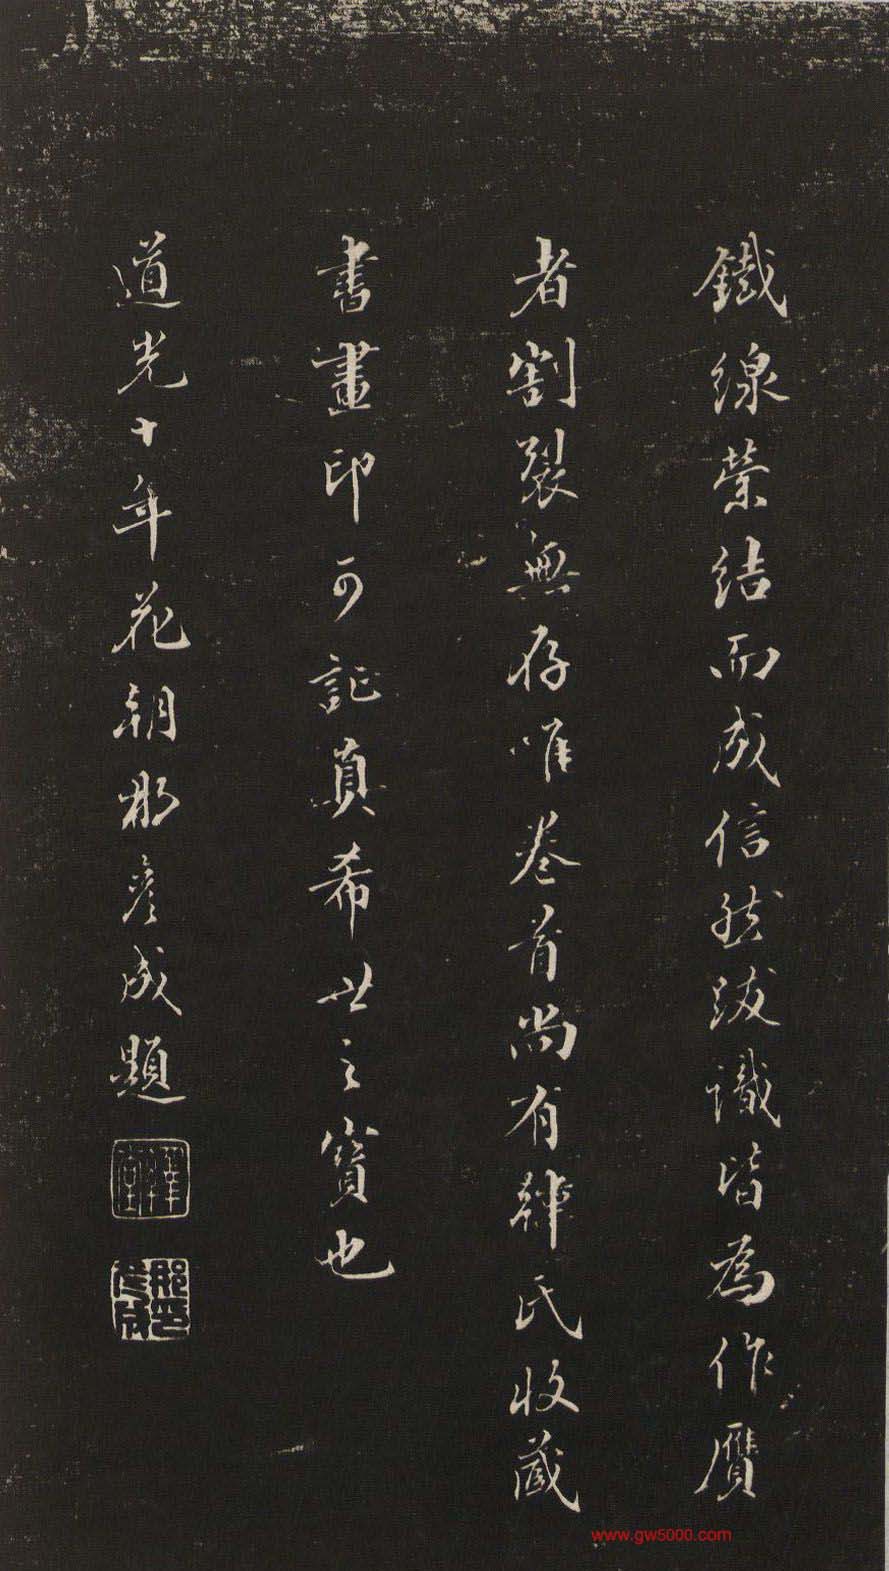 鐵線縈結而成信然跋識皆為作贋
者割裂無存唯卷首尚有韓氏收藏
書畫印可記真希世之寶也
道光十年花朝那彥成題
繹堂
那彥成印
www.gw5000.com